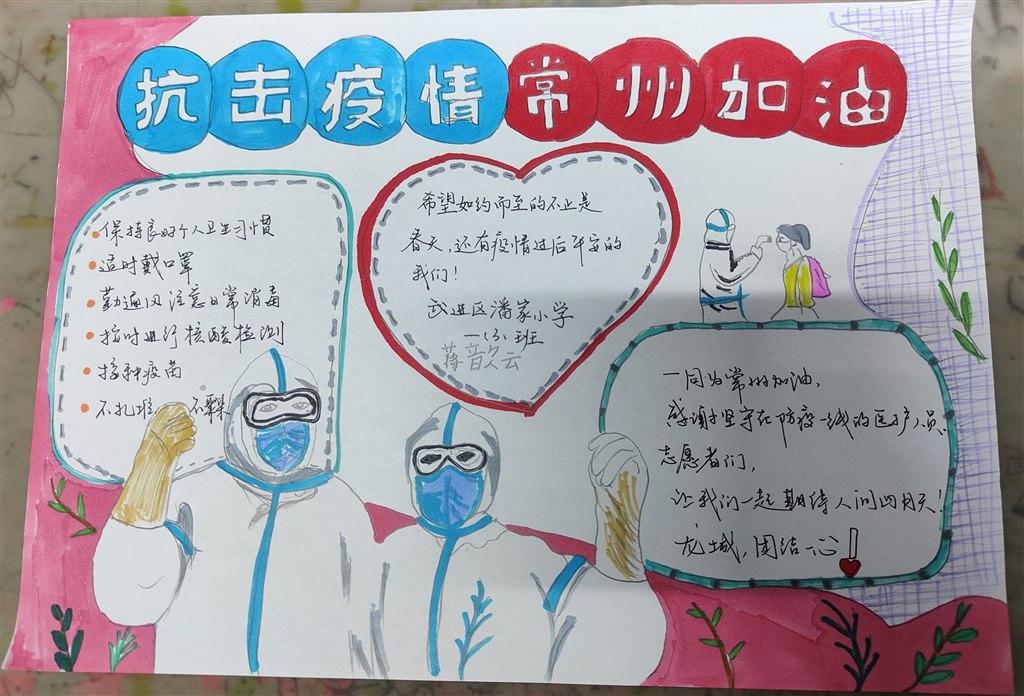 抗击疫情常州加油
保持良好个人卫生习惯
适时戴口罩
勤通风注意日常消毒
按时进行核酸检测
接种疫苗
不扎堆 不聚集
希望如约而至的不止是
春天,还有疫情过后平安的
我们!
武进区潘家小学
一(3)班
蒋歆云
一同为常州加油,
感谢坚守在防疫一线的医护人员、
志愿者们,
让我们一起期待人间四月天!
龙城,团结一心!